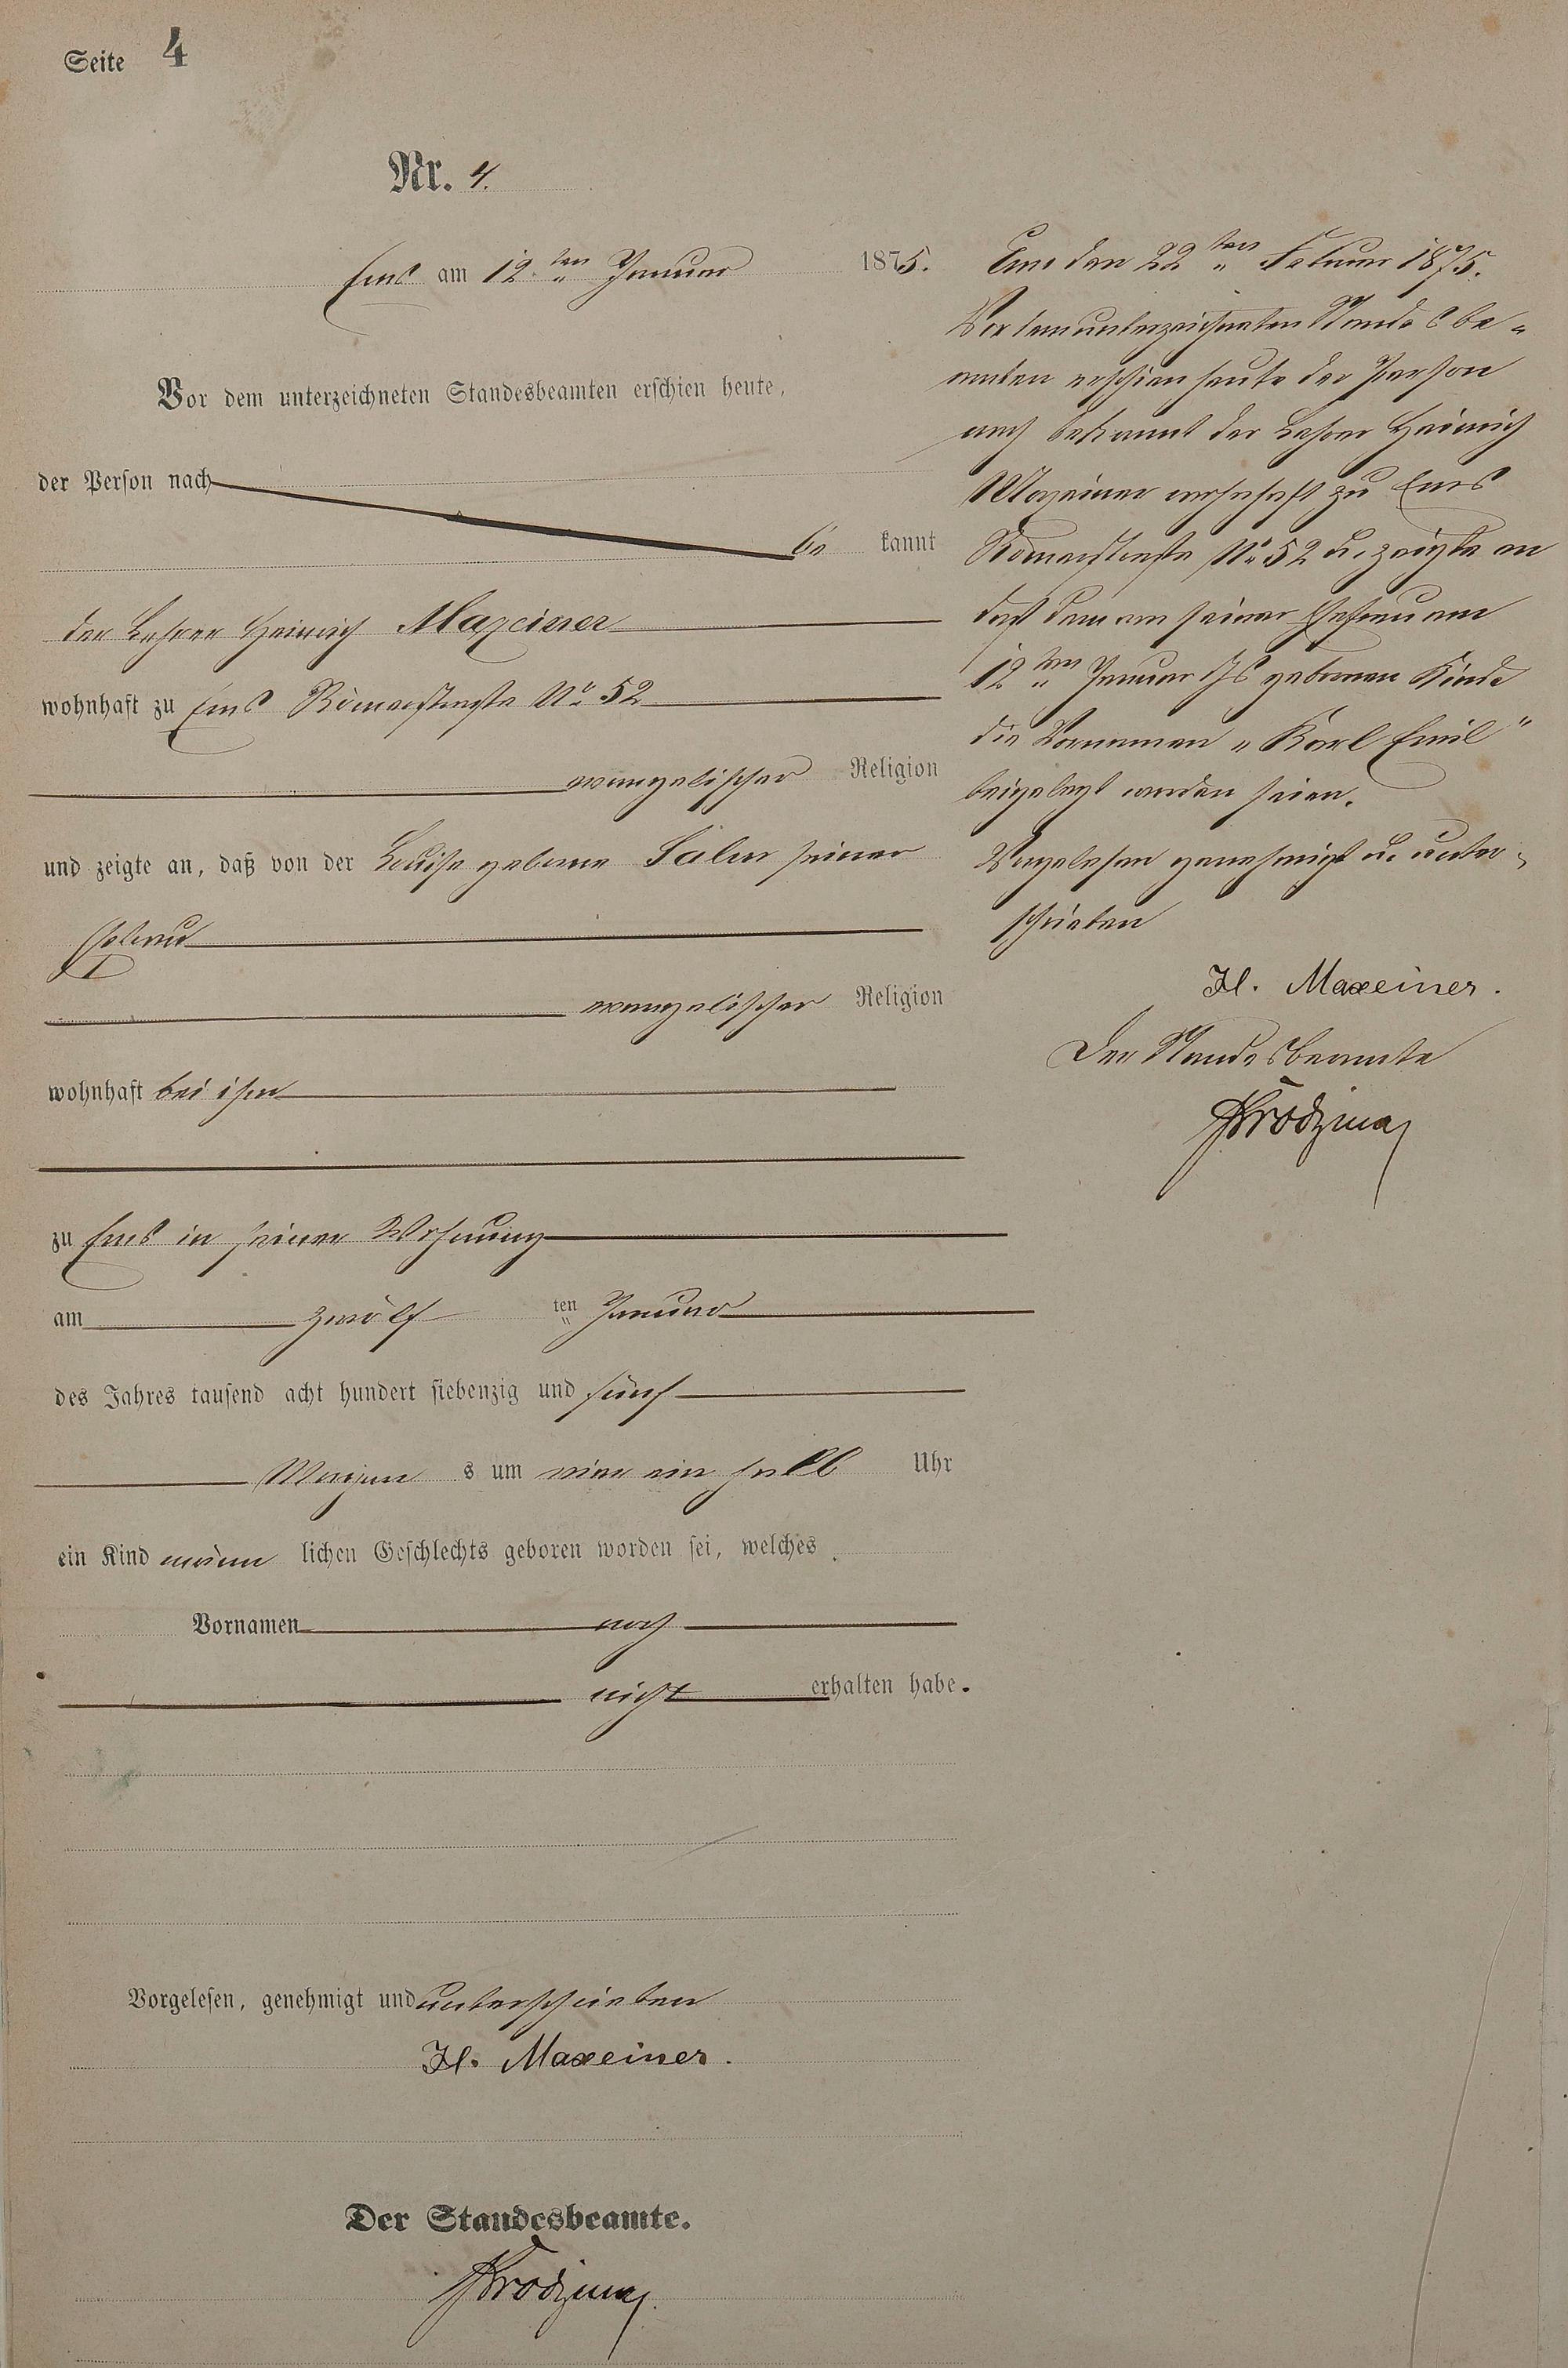 Seite 4
Nr. 4.
Ems am 12ten Januar 1875.
Vor dem unterzeichneten Standesbeamten erschien heute,
der Person nach
be kannt
der Lehrer Heinrich Maxeiner
wohnhaft zu Ems Römerstraße No 52
evangelischer Religion
und zeigte an, daß von der Louise geborne Salm seiner
Ehefrau
evangelischer Religion
wohnhaft bei ihm
zu Ems in seiner Wohnung
am zwölf ten Januar
des Jahres tausend acht hundert siebenzig und fünf
Morgen s um vier ein halb Uhr
ein Kind männ lichen Geschlechts geboren worden sei, welches
Vornamen noch
nicht erhalten habe.
Vorgelesen, genehmigt und unterschrieben
H. Maxeiner.
Der Standesbeamte.
Ems den 22ten Februar 1875.
Vor dem unterzeichneten Standesbe-
amten erschien heute der Person
nach bekannt der Lehrer Heinrich
Maxeiner wohnhaft zu Ems
Römerstraße No 52 u. zeigte an
daß dem von seiner Ehefrau am
12ten Januar d Js gebornen Kinde
die Vornamen "Karl Emil"
beigelegt worden seien.
Vorgelesen genehmigt u. unter-
schrieben
H. Maxeiner.
Der Standesbeamte